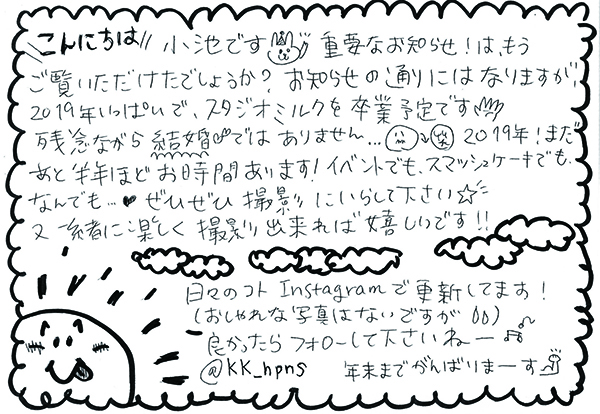 こんにちは!! 小池です 重要なお知らせ!は、もう
ご覧いただけたでしょうか? お知らせの通りにはなりますが、
2019年いっぱいで、スタジオミルクを卒業予定です
残念ながら結婚ではありません… 笑 2019年!まだ
あと半年ほどお時間あります!イベントでも、スマッシュケーキでも、
なんでも…♥ ぜひぜひ撮影にいらして下さい☆
又一緒に楽しく撮影出来れば嬉しいです!!
日々のコト Instagramで更新してます!
(おしゃれな写真はないですが)
良かったらフォローして下さいねー♫
@KK_hpns 年末までがんばりまーす